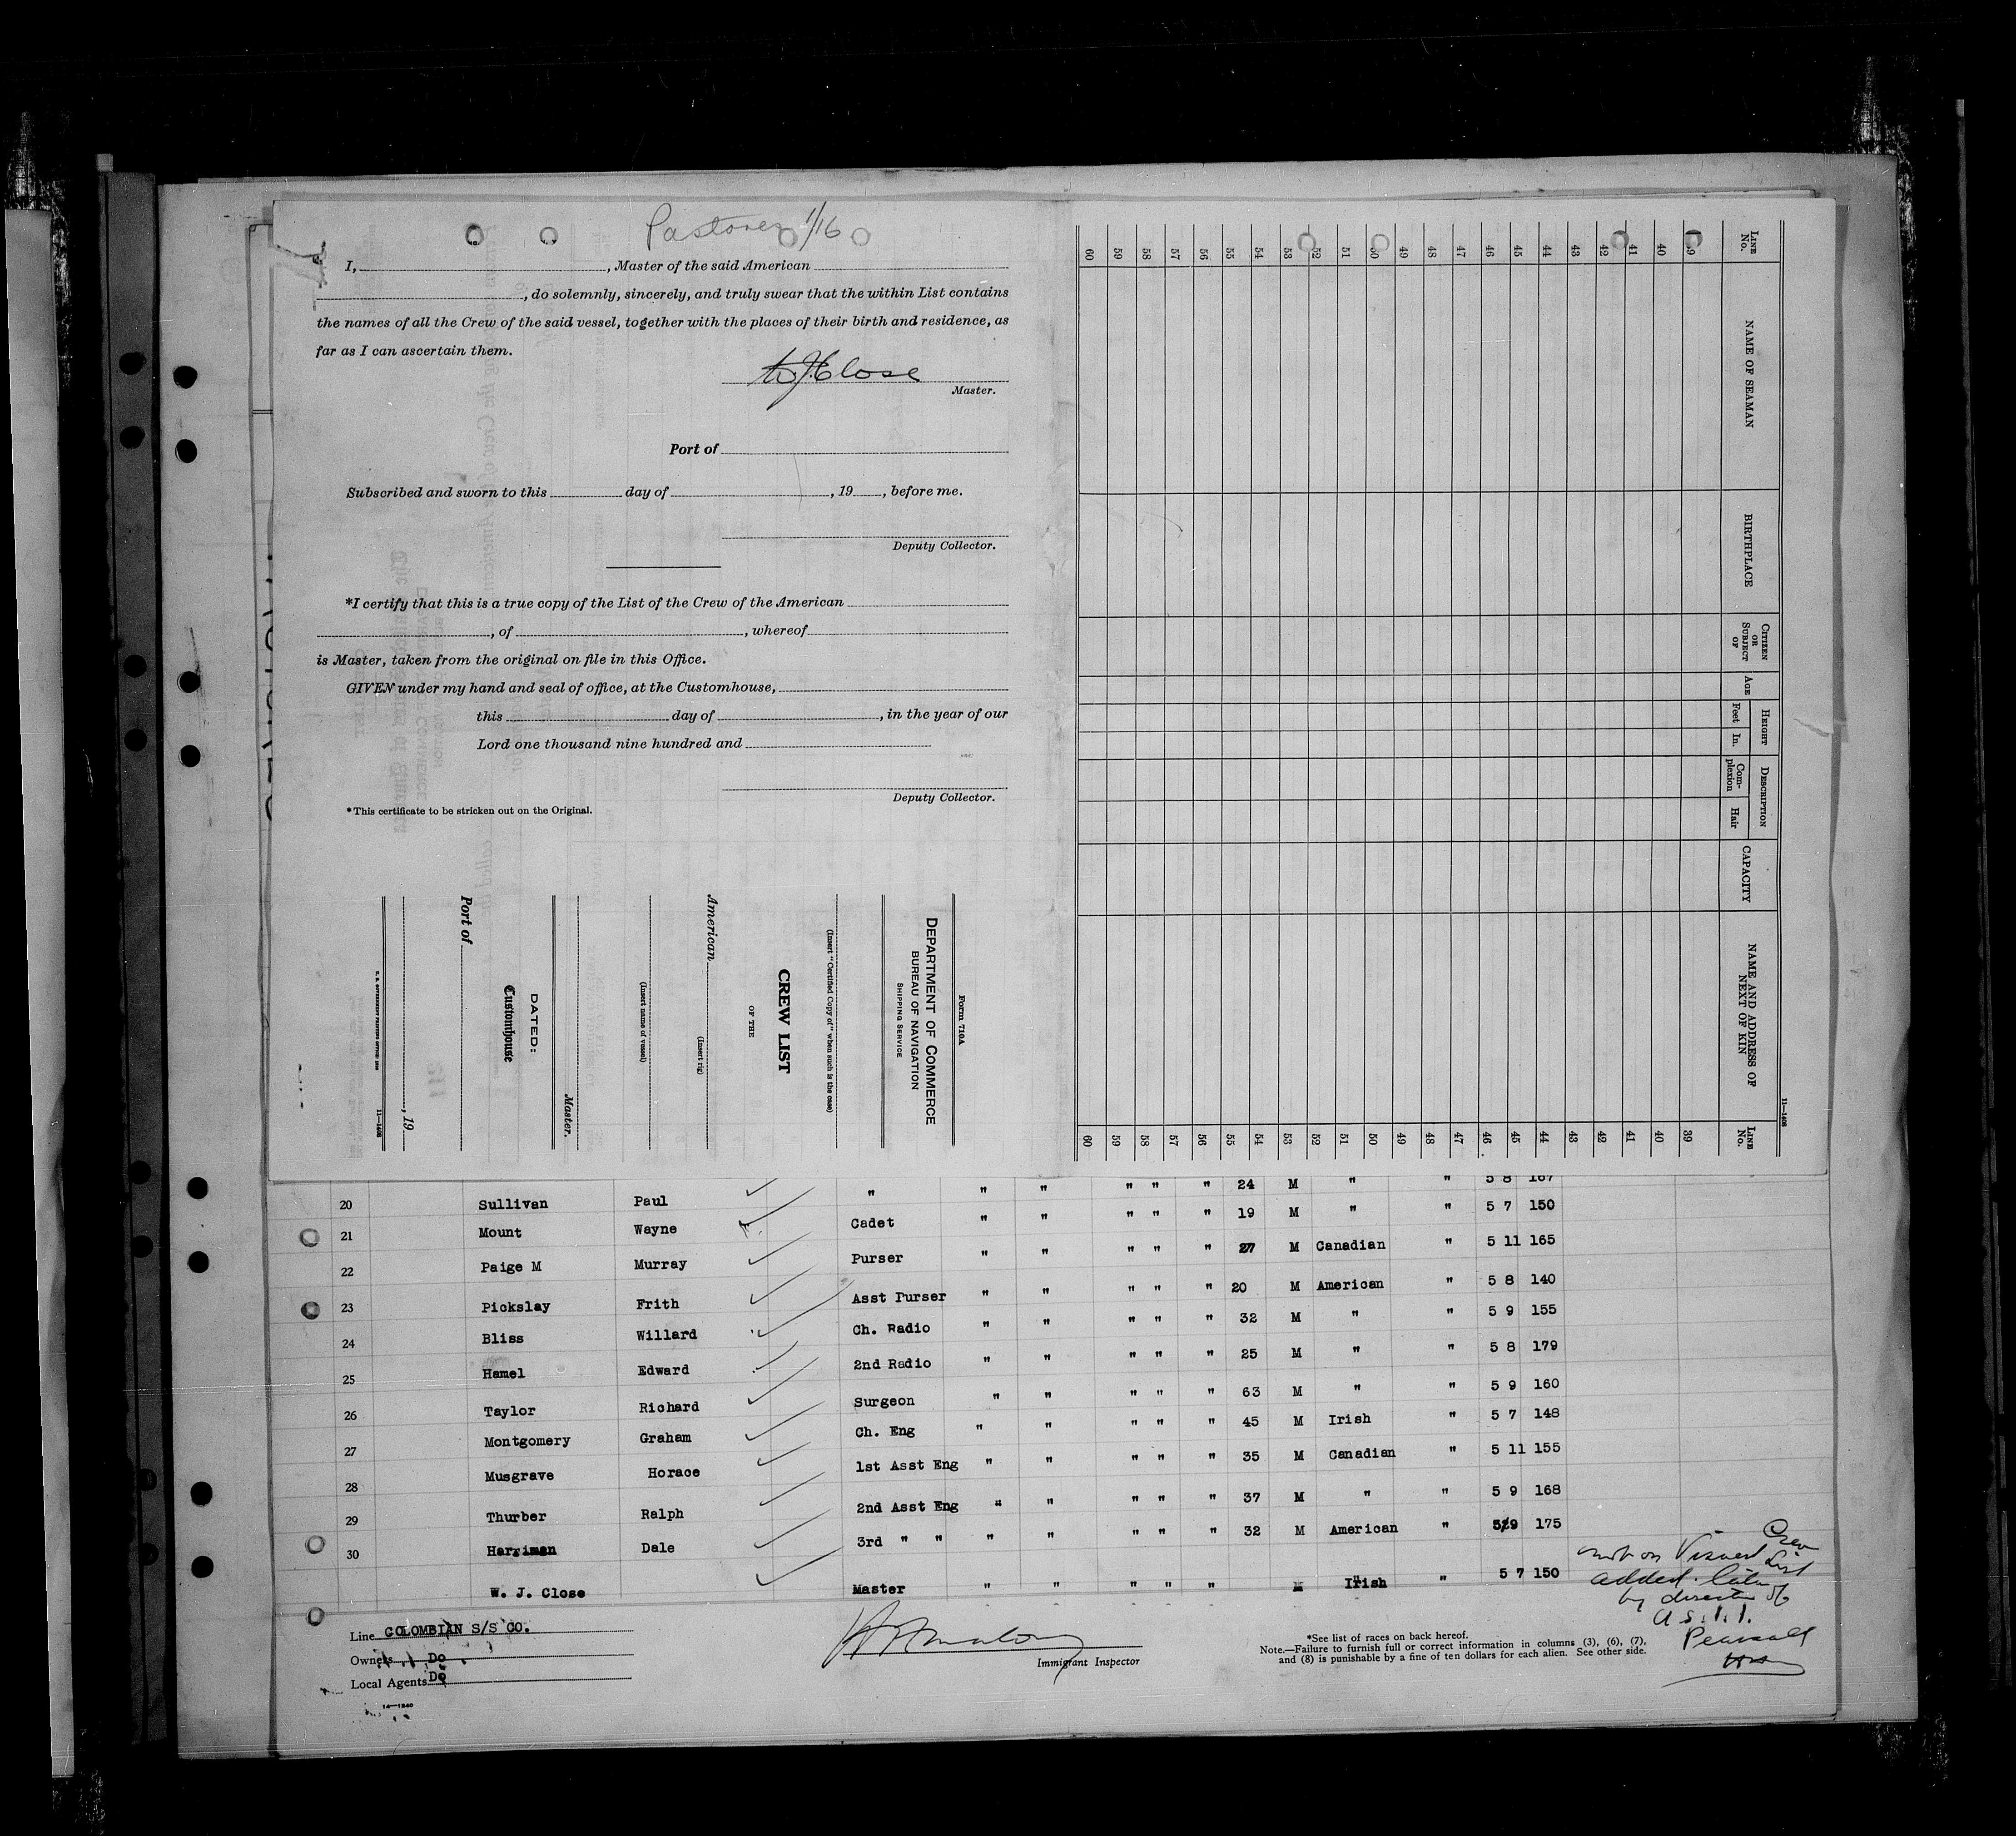 Pastores 1/16
I, , Master of the said American
, do solemnly, sincerely, and truly swear that the within List contains
the names of all the Crew of the said vessel, together with the places of their birth and residence, as
far as I can ascertain them.
W J Close
Master.
Port of
Subscribed and sworn to this day of , 19 , before me.
Deputy Collector.
*I certify that this is a true copy of the List of the Crew of the American
, of , whereof
is Master, taken from the original on file in this Office.
GIVEN under my hand and seal of office, at the Customhouse,
this day of , in the year of our
Lord one thousand nine hundred and
Deputy Collector.
*This certificate to be stricken out on the Original.
Form 710A
DEPARTMENT OF COMMERCE
BUREAU OF NAVIGATION
SHIPPING SERVICE
(Insert "Certified Copy of" when such is the case)
CREW LIST
OF THE
American
(Insert rig)
(Insert name of vessel)
Master.
DATED:
Customhouse
Port of
, 19
11—1408
LINE No.
NAME OF SEAMAN
BIRTHPLACE
CITIZEN OR SUBJECT OF
AGE
HEIGHT
Feet In.
DESCRIPTION
Complexion Hair
CAPACITY
NAME AND ADDRESS OF NEXT OF KIN
LINE No.
11—1408
60 59 58 57 56 55 54 53 52 51 50 49 48 47 46 45 44 43 42 41 40 39
60 59 58 57 56 55 54 53 52 51 50 49 48 47 46 45 44 43 42 41 40 39
20 Sullivan Paul " " " " " " 24 M " " 5 8 167
21 Mount Wayne Cadet " " " " " 19 M " " 5 7 150
22 Paige M Murray Purser " " " " " 27 M Canadian " 5 11 165
23 Pickslay Frith Asst Purser " " " " " 20 M American " 5 8 140
24 Bliss Willard Ch. Radio " " " " " 32 M " " 5 9 155
25 Hamel Edward 2nd Radio " " " " " 25 M " " 5 8 179
26 Taylor Richard Surgeon " " " " " 63 M " " 5 9 160
27 Montgomery Graham Ch. Eng " " " " " 45 M Irish " 5 7 148
28 Musgrave Horace 1st Asst Eng " " " " " 35 M Canadian " 5 11 155
29 Thurber Ralph 2nd Asst Eng " " " " " 37 M " " 5 9 168
30 Harriman Dale 3rd " " " " " " " 32 M American " 5 9 175
W. J. Close Master " " " " " M Irish " 5 7 150
not on Visaed Crew List
added later
by direction of
A.S.I.I.
Pearsall
Line COLOMBIAN S/S CO.
Owners Do
Local Agents Do
14—1240
Immigrant Inspector
*See list of races on back hereof.
Note.—Failure to furnish full or correct information in columns (3), (6), (7),
and (8) is punishable by a fine of ten dollars for each alien. See other side.